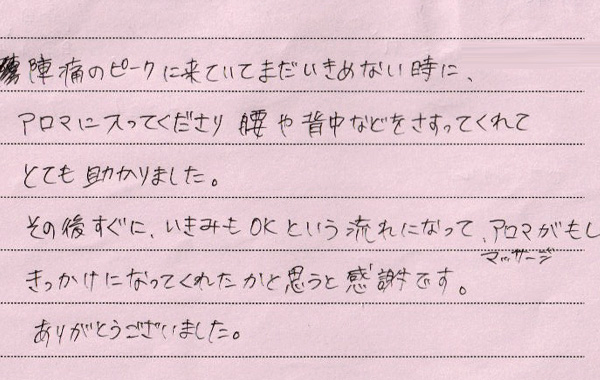 陣痛のピークに来ていてまだいきめない時に、
アロマに入ってくださり腰や背中などをさすってくれて
とても助かりました。
その後すぐに、いきみもOKという流れになって、アロマがもし
マッサージ
きっかけになってくれたかと思うと感謝です。
ありがとうございました。